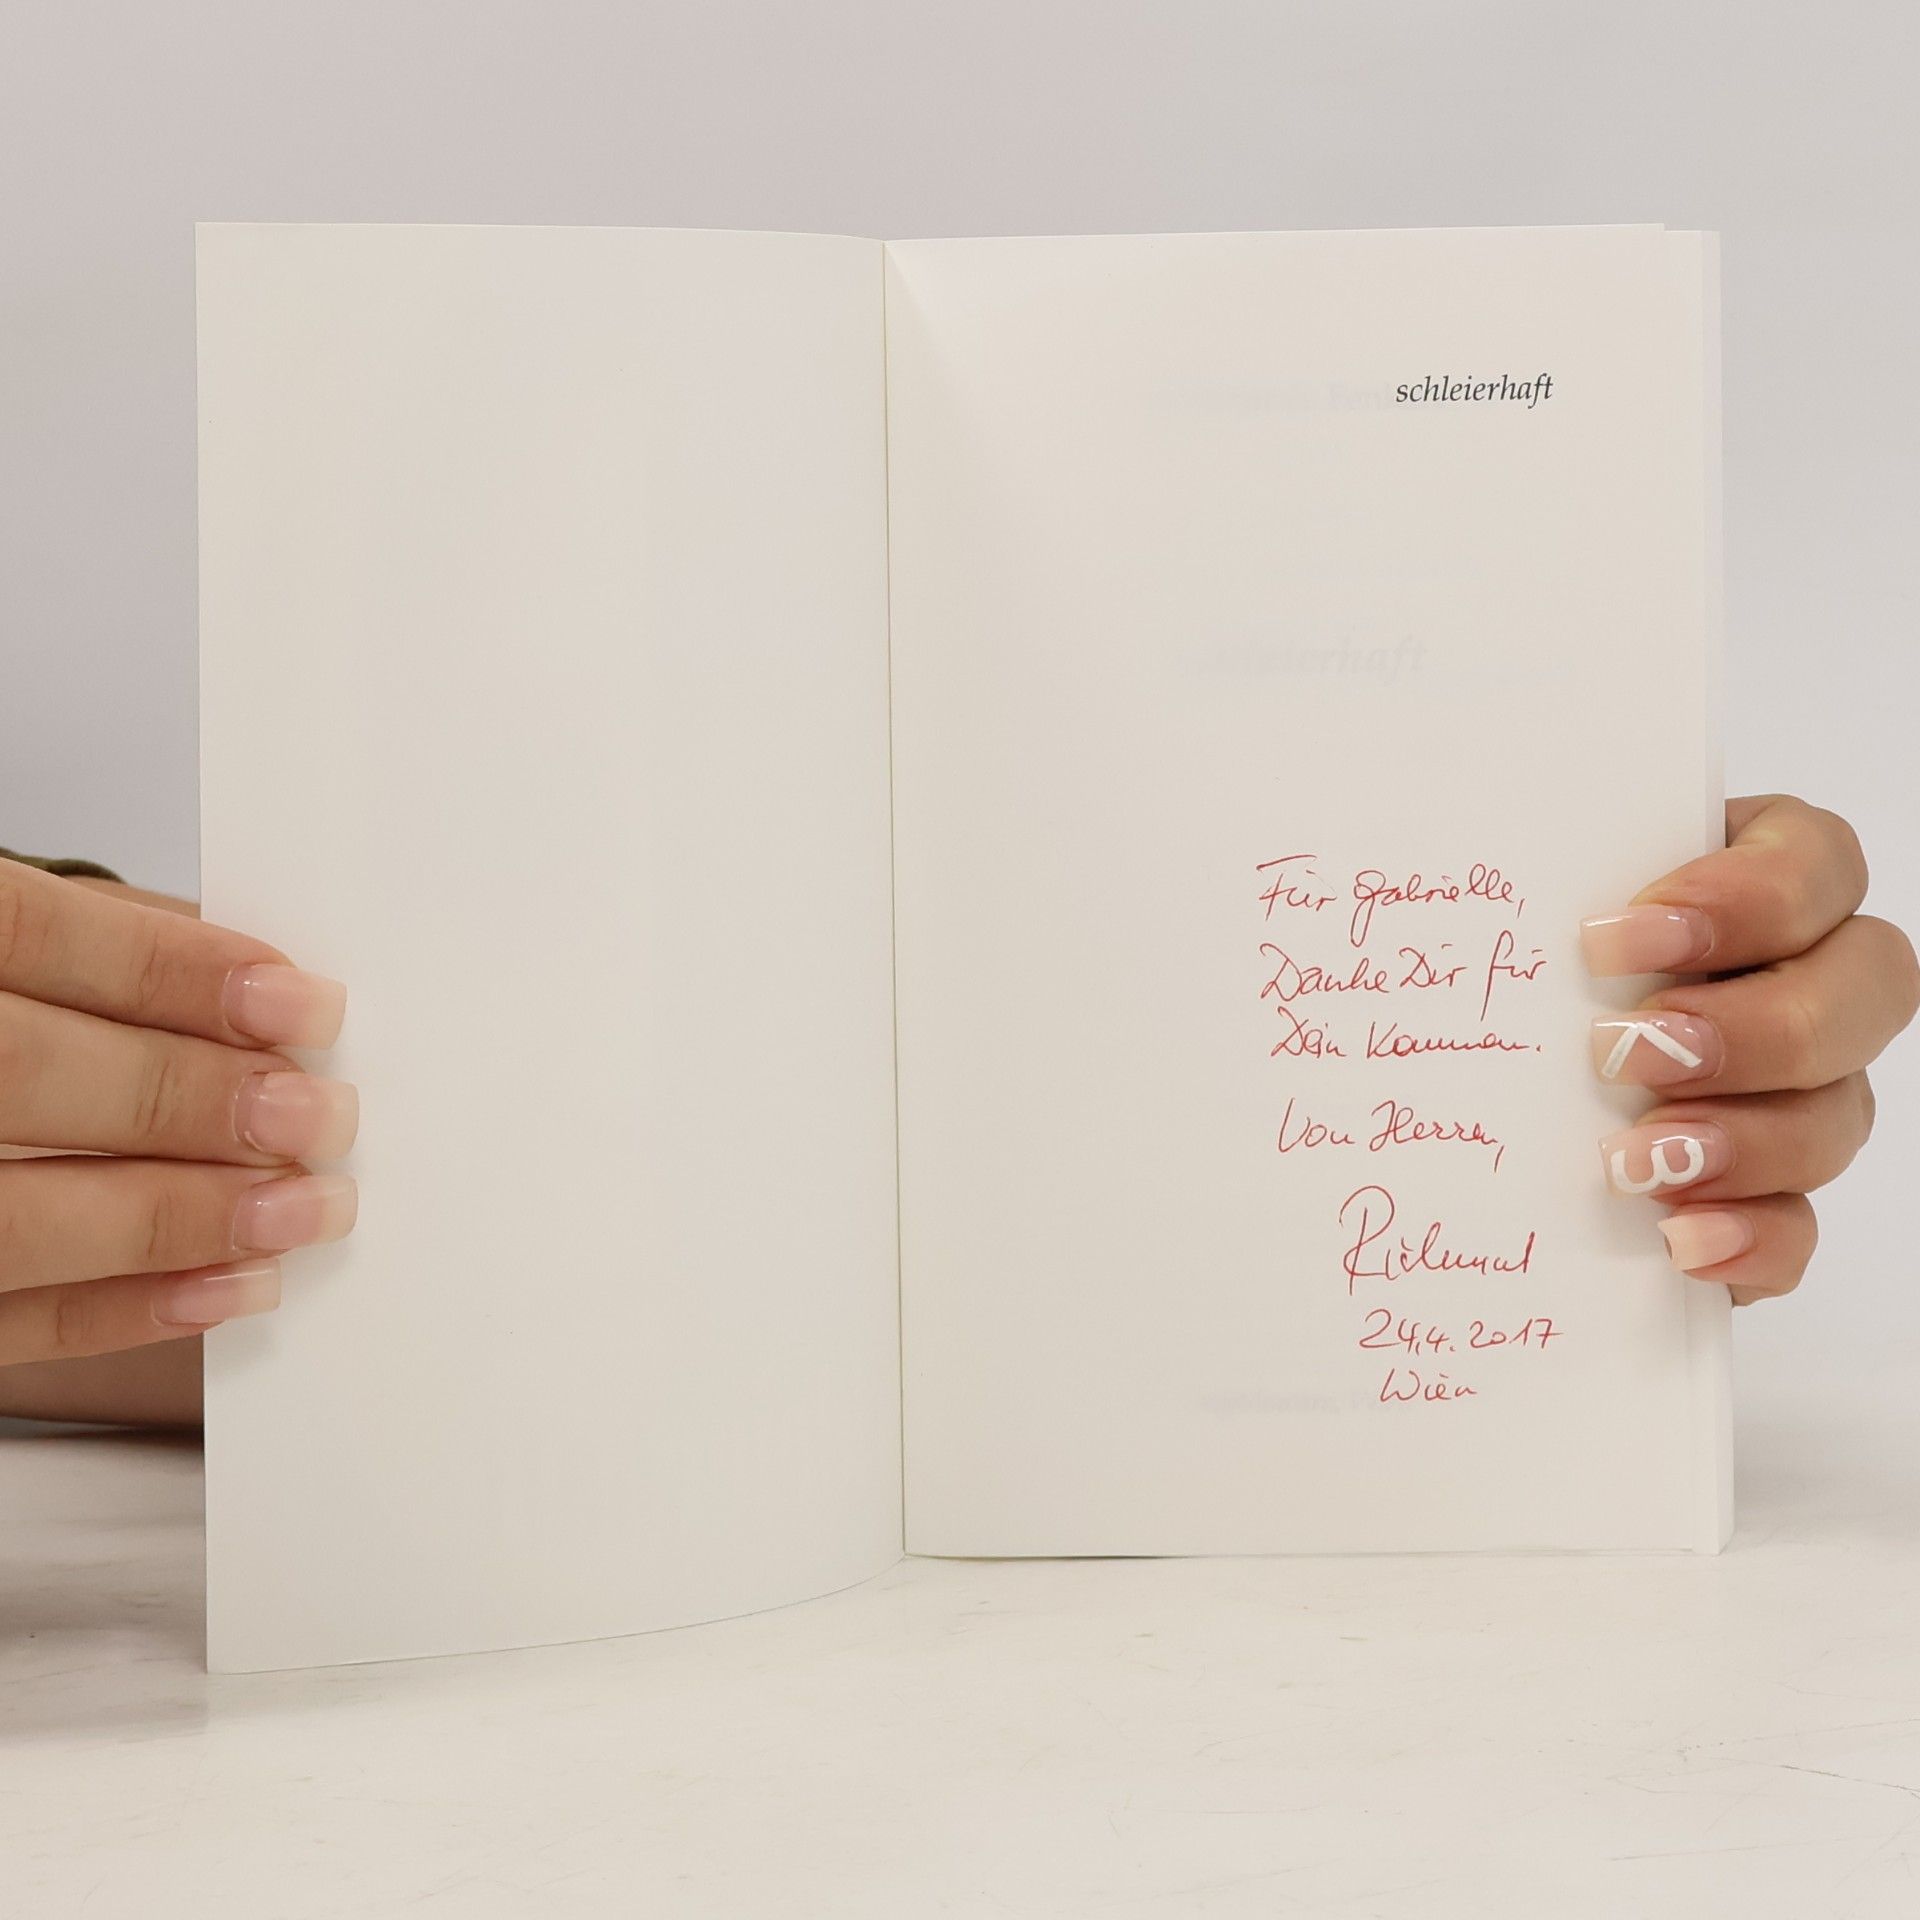 schleierhaft
Für Gabrielle,
Danke Dir für
Dein Kommen.
Von Herzen,
24.4.2017
Wien
K
3